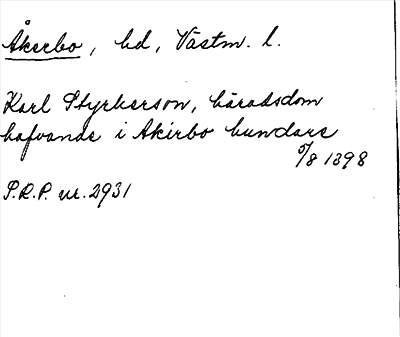 Åkerbo, hd, Västm. l.
Karl Styrkerson, häradsdom
hafvande i Akirbo hundare
5/8 1398
P.R.P. nr. 2931